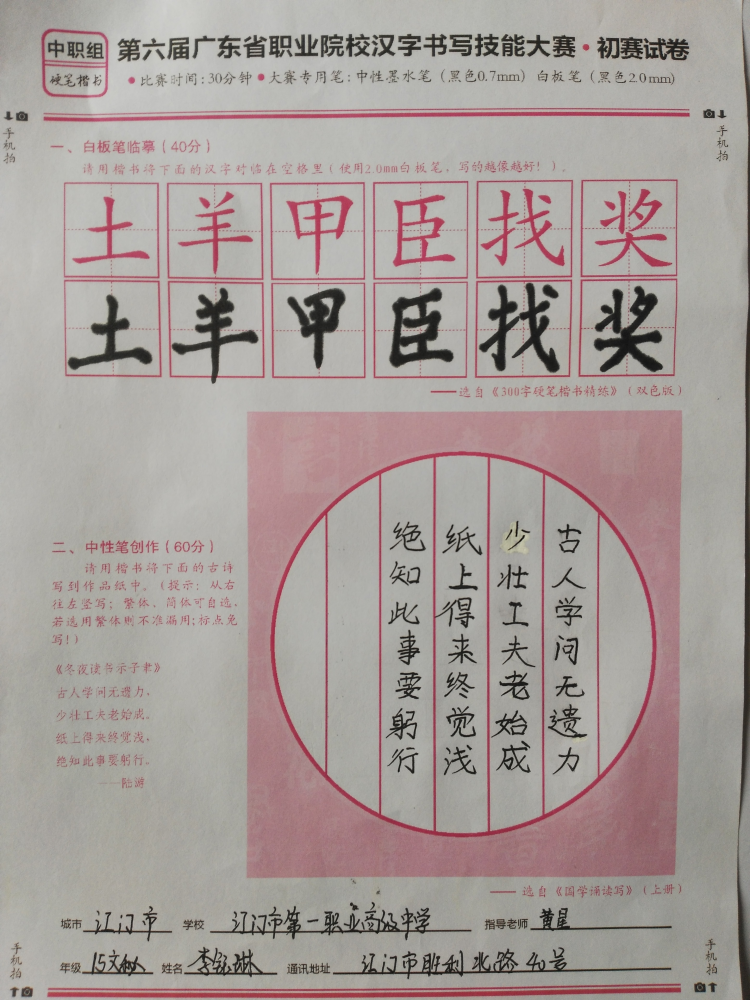 中职组
硬笔楷书
第六届广东省职业院校汉字书写技能大赛·初赛试卷
●比赛时间:30分钟●大赛专用笔:中性墨水笔(黑色0.7mm)白板笔(黑色2.0mm)
手机拍
手机拍
一、白板笔临摹(40分)
请用楷书将下面的汉字对临在空格里(使用2.0mm白板笔,写的越像越好!)。
土羊甲臣找奖
土羊甲臣找奖
——选自《300字硬笔楷书精练》(双色版)
二、中性笔创作(60分)
请用楷书将下面的古诗
写到作品纸中。(提示:从右
往左竖写;繁体、简体可自选,
若选用繁体则不准漏用;标点免
写!)
《冬夜读书示子聿》
古人学问无遗力,
少壮工夫老始成。
纸上得来终觉浅,
绝知此事要躬行。
——陆游
古人学问无遗力
少壮工夫老始成
纸上得来终觉浅
绝知此事要躬行
——选自《国学诵读写》(上册)
城市 江门市 学校 江门市第一职业高级中学 指导老师 黄星
年级 15文秘 姓名 李 琳 通讯地址 江门市胜利北路40号
手机拍
手机拍